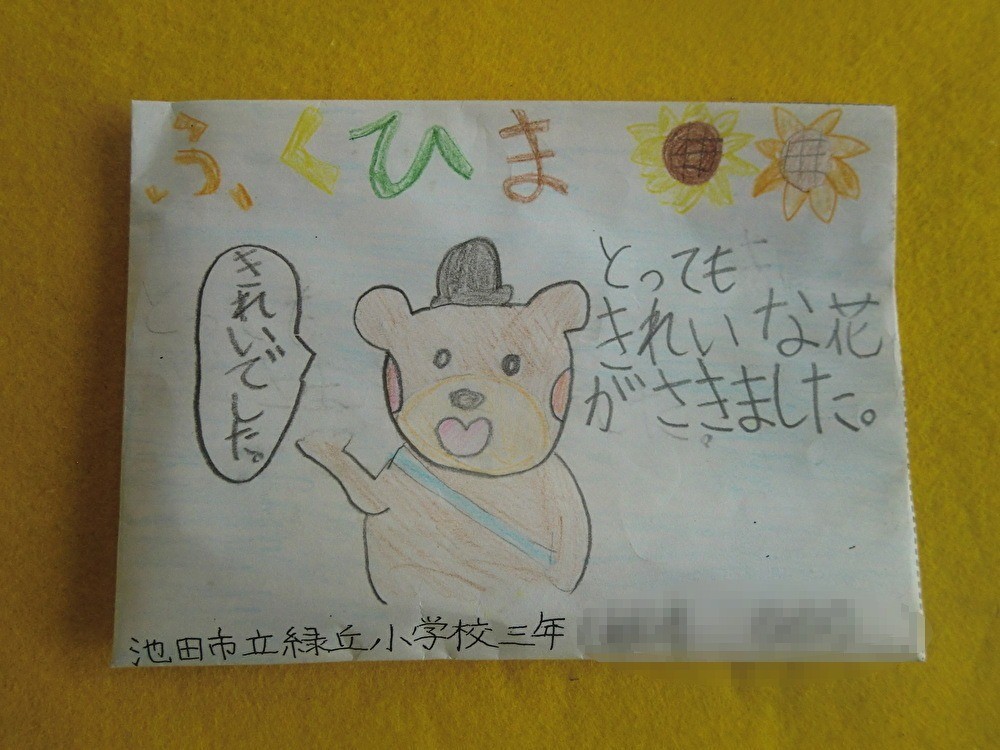 ふくひま
きれいでした。
とっても
きれいな花
がさきました。
池田市立緑丘小学校三年